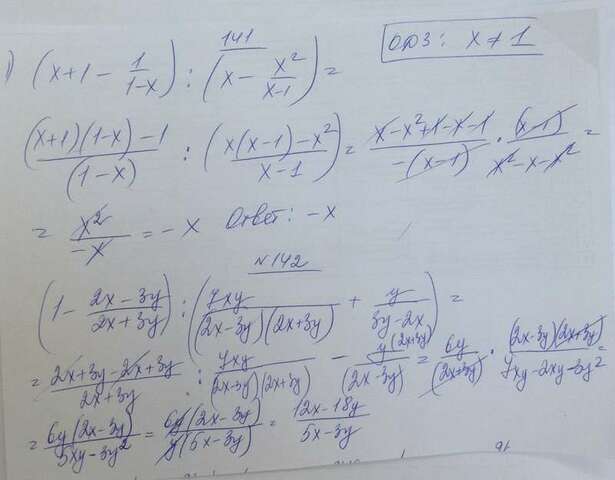 141
ОДЗ: x ≠ 1
1) (x+1 - 1/(1-x)) : (x - x²/(x-1)) =
((x+1)(1-x)-1)/(1-x) : ((x(x-1)-x²)/(x-1)) = (x-x²+1-x-1)/(-(x-1)) · (x-1)/(x²-x-x²) =
= x²/-x = -x Ответ: -x
N142
(1 - (2x-3y)/(2x+3y)) : (7xy/((2x-3y)(2x+3y)) + y/(3y-2x)) =
= (2x+3y-2x+3y)/(2x+3y) : 7xy/((2x-3y)(2x+3y)) - y(2x+3y)/(2x-3y) = 6y/(2x+3y) · ((2x-3y)(2x+3y))/(7xy-2xy-3y²) =
= 6y(2x-3y)/(5xy-3y²) = 6y(2x-3y)/(y(5x-3y)) = (12x-18y)/(5x-3y)